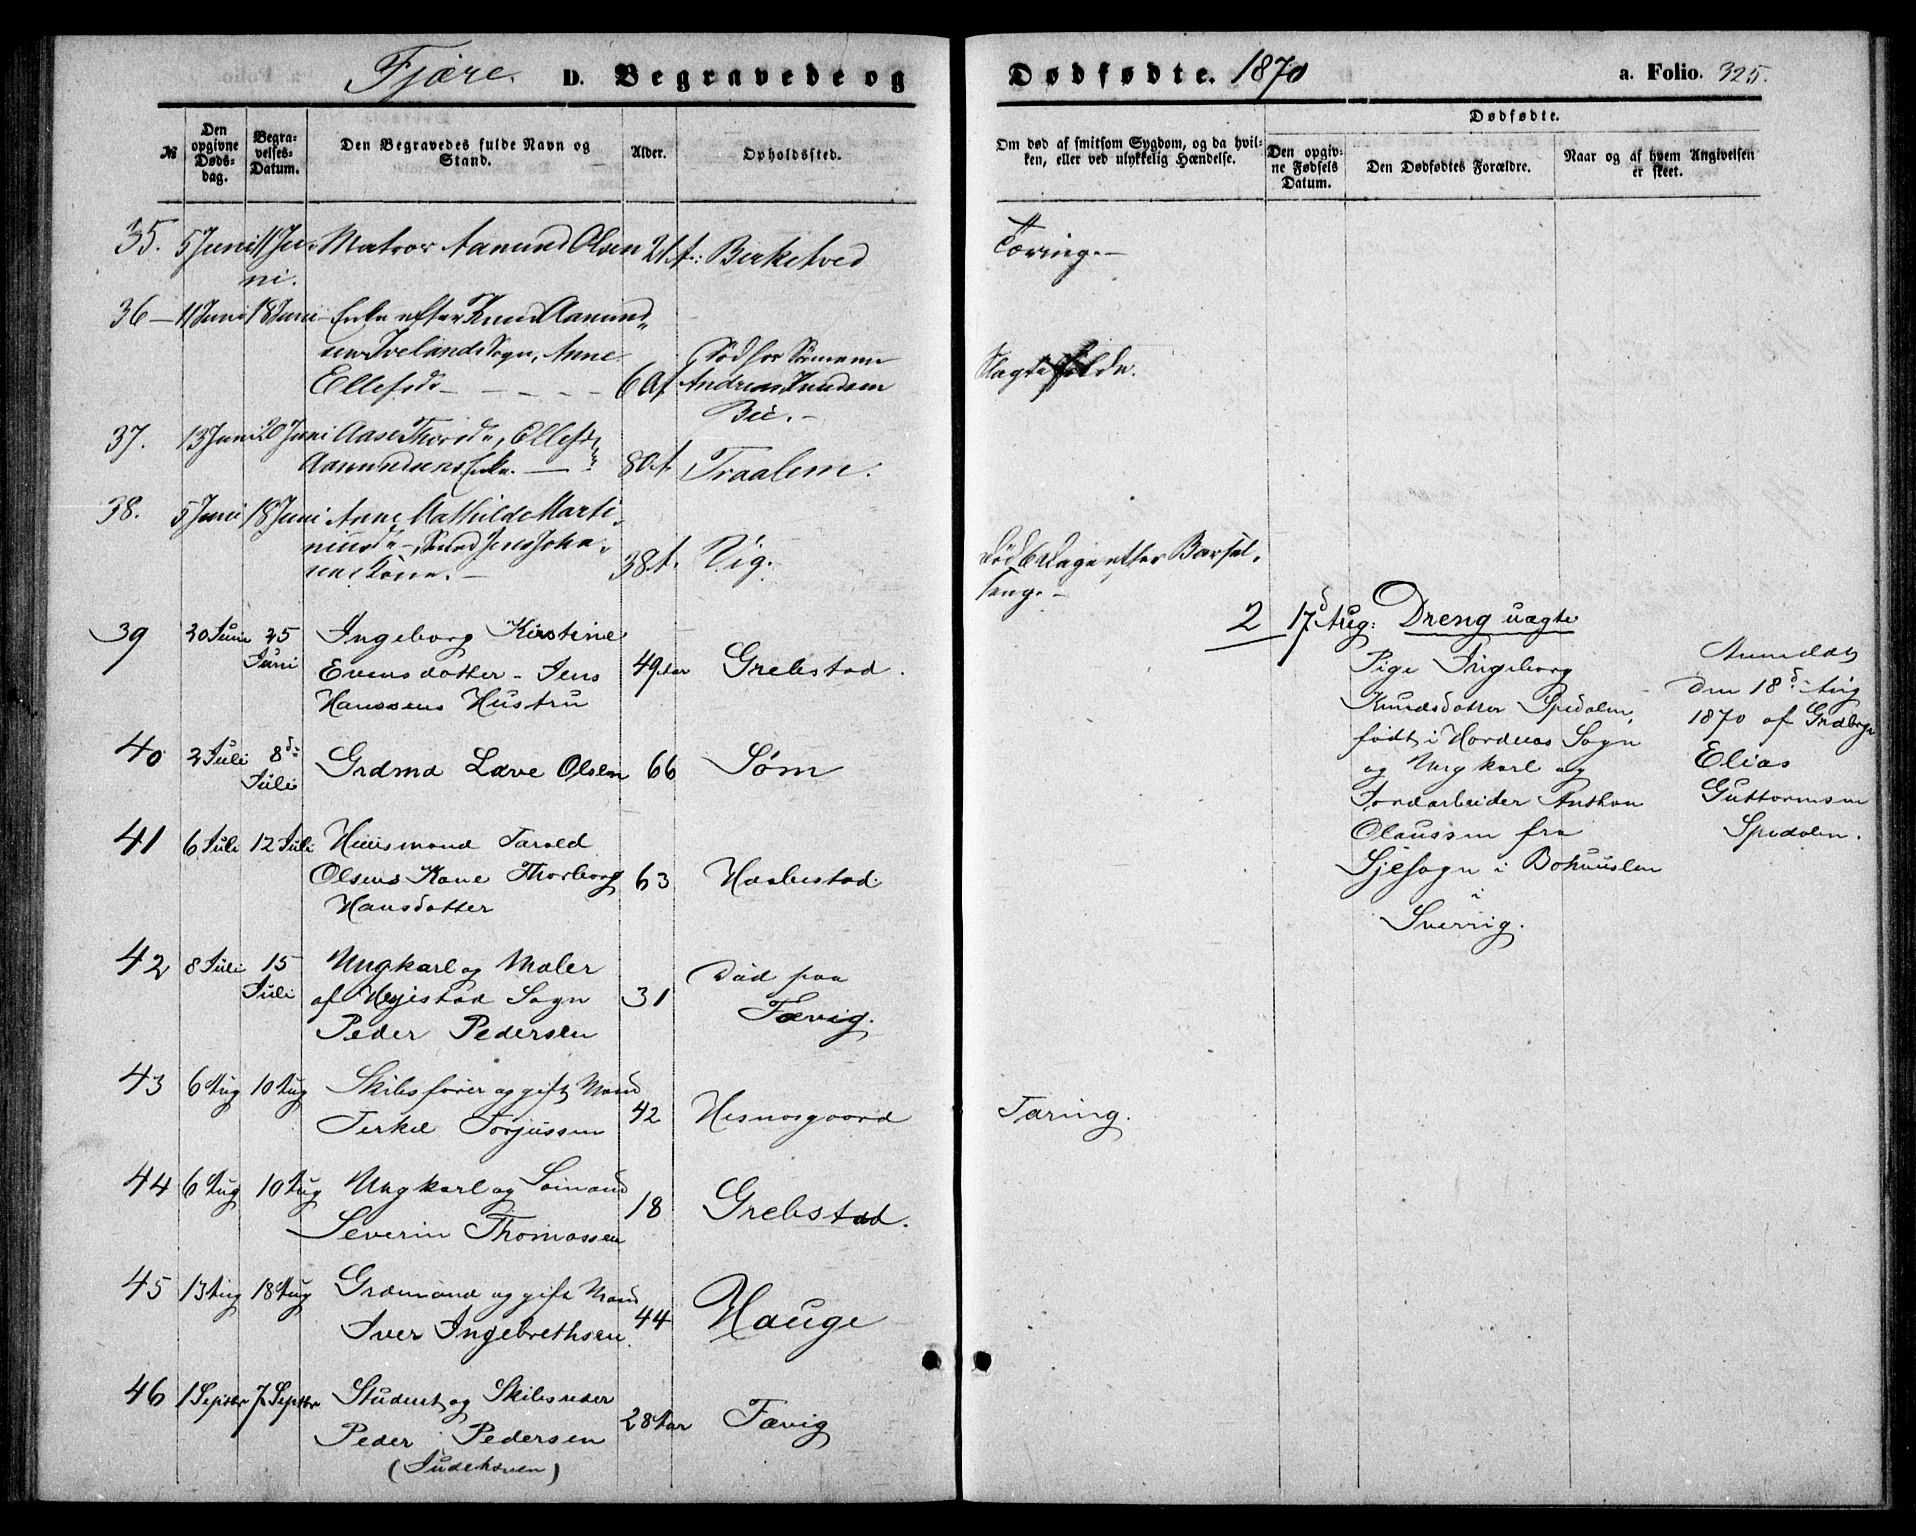 Fjære. D. Begravede og
№
Den opgivne Døds-dag.
Begra-velses-Datum.
Den Begravedes fulde Navn og Stand.
Alder.
Opholdssted.
35. 5 Juni 11 Ju- Matros Aamund Olsen 21 A: Birketved
ni.
36 — 11 Juni 18 Juni Enke efter Knud Aamund„
sen Ivelands Sogn, Anne
Ellefsd. — — — — 60 A
Død hos Sømann
Andreas Knudsen
Bie. —
37. 13 Juni 20 Juni Aase Thorsd„, Ellef
Aamundsens Enke. — 80 A. Traalem.
38. 5 Juni 18 Juni Anne Mathilde Marti„
niusd„ — Jens Joha„
sens Kone. — 38 A. Vig.
39 20 Juni 25 Ingeborg Kirstine
Juni Evensdatter - Jens 49 Aar Grebstad.
Hanssens Hustru
40 2 Juli 8de Juli Grdmd Lave Olsen 66 Søm
41 6 Juli 12 Juli Huusmand Tarald
Olsens Kone Thorborg 63 Haabestad.
Hansdatter
42 8 Juli 15 Ungkarl og Maler
Juli af Sogn 31 Død paa
Peder Pedersen Fævig.
43 6 Aug 10 Aug Skibsfører og gift Mand
Terkel Torjussen 42 Hesnesgaard
44 6 Aug 10 Aug Ungkarl og Sømand
Severin Thomassen 18 Grebstad.
45 13 Aug 18 Aug Grdmand og gift Mand
Iver Ingebrethsen 44 Hauge
46 1 Septbr 7 Septbr Student og Skibsreder
Peder Pedersen 28 Aar Fævig
Dødfødte. 1870 a. Folio. 325.
Om død af smitsom Sygdom, og da hvil-
ken, eller ved ulykkelig Hændelse.
Dødfødte.
Den opgiv-ne Fødsels Datum.
Den Dødfødtes Forældre.
Naar og af hvem Angivelsen
er skeet.
Tæring. —
Død 6 Dage efter Barsel„
seng. —
2 17d Aug: Dreng uægte
Pige Ingeborg
Knudsdatter Spedalen,
født i Hordnes Sogn
og Ungkarl og
Jordarbeider Anthon
Olaussen fra
Sjesogn i Bohuuslen
i
Sverrig.
Anmeldt
den 18d Aug
1870 af Grdbrgr
Elias
Guttormsen
Spedalen.
Tæring.